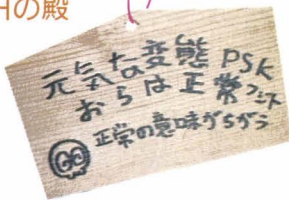 Hの殿
元気な変態 PSK
おらは正常
正常の意味がちがう